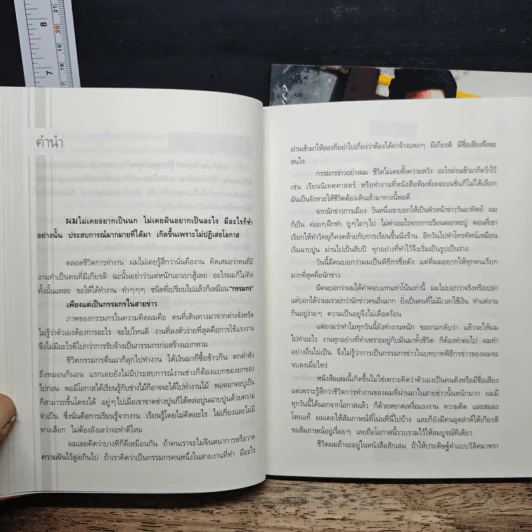 8
7
20
คำนำ
ผมไม่เคยอยากเป็นนก ไม่เคยฝันอยากเป็นอะไร มีอะไรก็ทำ
อย่างนั้น ประสบการณ์มากมายที่ได้มา เกิดขึ้นเพราะไม่ปฏิเสธโอกาส
ตลอดชีวิตการทำงาน ผมไม่เคยรู้สึกว่านั่นคืองาน คิดเสมอว่าคนที่มี
งานทำเป็นคนที่มีเกียรติ ฉะนั้นอย่าว่าแต่หนักเอาเบาสู้เลย อะไรผมก็ไม่คิด
ทั้งนั้นแหละ ขอให้ได้ทำงาน ทำๆๆๆๆ ชนิดที่เปรียบไปแล้วก็เหมือน "กรรมกร"
เพียงแต่เป็นกรรมกรในสายข่าว
ภาพของกรรมกรในความคิดผมคือ คนที่เดินทางมาจากต่างจังหวัด
ไม่รู้ว่าตัวเองต้องการอะไร จะไปไหนดี งานที่ลงตัวง่ายที่สุดคือการใช้แรงงาน
จึงไม่มีอะไรดีไปกว่าการรับจ้างเป็นกรรมกรก่อสร้างแบกหาม
ชีวิตกรรมกรตื่นมาก็ลุกไปทำงาน ได้เงินมาก็ซื้อข้าวกิน ตกค่ำหัว
ถึงหมอนก็นอน แรกเลยยังไม่มีประสบการณ์งานช่างก็ต้องแบกของยกของ
ไปก่อน พอมีโอกาสได้เรียนรู้กับช่างไม้ก็อาจจะได้ไปทำงานไม้ พอตอกตะปูเป็น
ก็สามารถขึ้นโครงได้ อยู่ๆ ไปเมื่อเขาขาดช่างปูนก็ให้หล่อปูนฉาบปูนด้วยความ
จำเป็น ซึ่งนั่นคือการเรียนรู้จากงาน เรียนรู้โดยไม่คิดอะไร ไม่เกี่ยงและไม่มี
ทางเลือก ไม่ต้องลังเลว่าจะทำดีไหม
ผมเลยคิดว่าบางทีก็ดีเหมือนกัน ถ้าคนเราจะไม่จินตนาการหรือวาด
ความฝันไว้สูงเกินไป ถ้าเราคิดว่าเป็นกรรมกรคนหนึ่งในสายงานที่ทำ มีอะไร
ผ่านเข้ามาให้ลองก็อย่าไปเกี่ยงว่าต้องได้ค่าจ้างแพงๆ มีเกียรติ มีชื่อเสียงจึงจะ
สนใจ
กรรมกรข่าวอย่างผม ชีวิตไม่เคยตั้งความหวัง อะไรผ่านเข้ามาก็คว้าไว้
เช่น เรียนนิเทศศาสตร์ หรือทำงานที่หนังสือพิมพ์เดอะเนชั่นก็ไม่ได้เลือก
มันเป็นจังหวะให้ชีวิตต้องเดินเข้ามาทางนี้พอดี
จากนักข่าวการเมือง วันหนึ่งเขาบอกให้เป็นหัวหน้าข่าววันอาทิตย์ ผม
ก็เป็น ค่อยๆ ฝึกทำ ถูๆ ไถๆ ไป ไม่ต่างอะไรจากการเรียนตอกตะปู ตอนที่เขา
เรียกให้ทำวิทยุก็คงคล้ายกับการเรียนขึ้นนั่งร้าน อีกวันไปทำโทรทัศน์เหมือน
เริ่มฉาบปูน ผ่านไปเป็นสิบปี ทุกอย่างที่ทำไว้จึงเริ่มเป็นรูปเป็นร่าง
วันนี้มีคนบอกว่าผมเป็นพิธีกรชื่อดัง แต่ที่ผมอยากให้ทุกคนเรียก
มากที่สุดคือนักข่าว
มีคนบอกว่าผมได้ค่าตอบแทนเท่าโน้นเท่านี้ ผมไม่บอกว่าจริงหรือเปล่า
แต่บอกได้ว่าผมรวยกว่านักข่าวคนอื่นมาก ยิ่งเป็นคนที่ไม่มีเวลาใช้เงิน ทำแต่งาน
กินอยู่ง่ายๆ ความเป็นอยู่จึงไม่เดือดร้อน
แต่ถามว่าทำไมทุกวันนี้ยังทำงานหนัก ขอถามกลับว่า แล้วจะให้ผม
ไปทำอะไร งานทุกอย่างที่ทำเพราะอยู่กับมันมาทั้งชีวิต ก็ต้องทำต่อไป ผมทำ
อย่างอื่นไม่เป็น จึงไม่รู้ว่าการเป็นกรรมกรข่าวในบทบาทพิธีกรข่าวของผมจะ
จบลงเมื่อไหร่
หนังสือเล่มนี้เกิดขึ้นไม่ใช่เพราะคิดว่าตัวเองเป็นคนดังหรือมีชื่อเสียง
แต่เพราะรู้สึกว่าชีวิตการทำงานของผมที่ผ่านมาในสายข่าวนั้นหนักมาก ผมมี
ทุกวันนี้ได้นอกจากโอกาสแล้ว ก็ด้วยหยาดเหงื่อแรงงาน ความคิด และสมอง
โดยแท้ ผมเคยให้สัมภาษณ์ที่โน่นที่นี่ไปบ้าง และก็ยังมีคนอุตส่าห์ให้เกียรติ
ขอสัมภาษณ์อยู่เรื่อยๆ เลยถือโอกาสนี้รวบรวมไว้ให้สมบูรณ์ทีเดียว
ชีวิตผมถ้าจะอยู่ในหนังสือสักเล่ม ถ้าให้ประดิษฐ์คำแบบวิลิศมาหรา